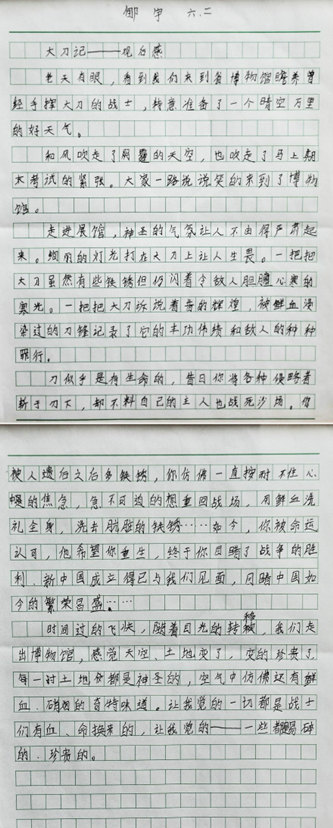 郇宇 六.二
大刀记——观后感
老天有眼，看到我们来到省博物馆瞻养曾
经手握大刀的战士，特意准备了一个晴空万里
的好天气。
和风吹走了阴霾的天空，也吹走了马上期
末考试的紧张。大家一路说说笑的来到了博物
馆。
走进展馆，神圣的气氛让人不由得严肃起
来。绚丽的灯光打在大刀上让人生畏。一把把
大刀虽然有些铁锈但仍闪着令敌人胆膽心寒的
奥光。一把把大刀诉说着昔的辉煌，被鲜血浸
染过的刀锋记录了它的丰功伟绩和敌人的种种
罪行。
刀似乎是有生命的，昔日你将各种侵略者
斩于刀下，却不料自己的主人也战死沙场。你
被人遗忘之后多铁锈，你仿佛一直按耐不住心
的焦急，急不可迫的想重回战场，用鲜血洗
礼全身，洗去肮脏的铁锈……如今，你被命运
认可，他希望你重生，终于你目睹了战争的胜
利、新中国成立得已与我们见面，同睹中国如
今的繁荣昌盛……
时间过的飞快，随着目光的转移，我们走
出博物馆，感觉天空、土地变了，变的珍贵了
每一寸土地分都是神圣的，空气中仿佛还有鲜
血、硝烟的奇特味道。让我觉的一切都是战士
们有血、命换来的，让我觉的——一些都
的、珍贵的。